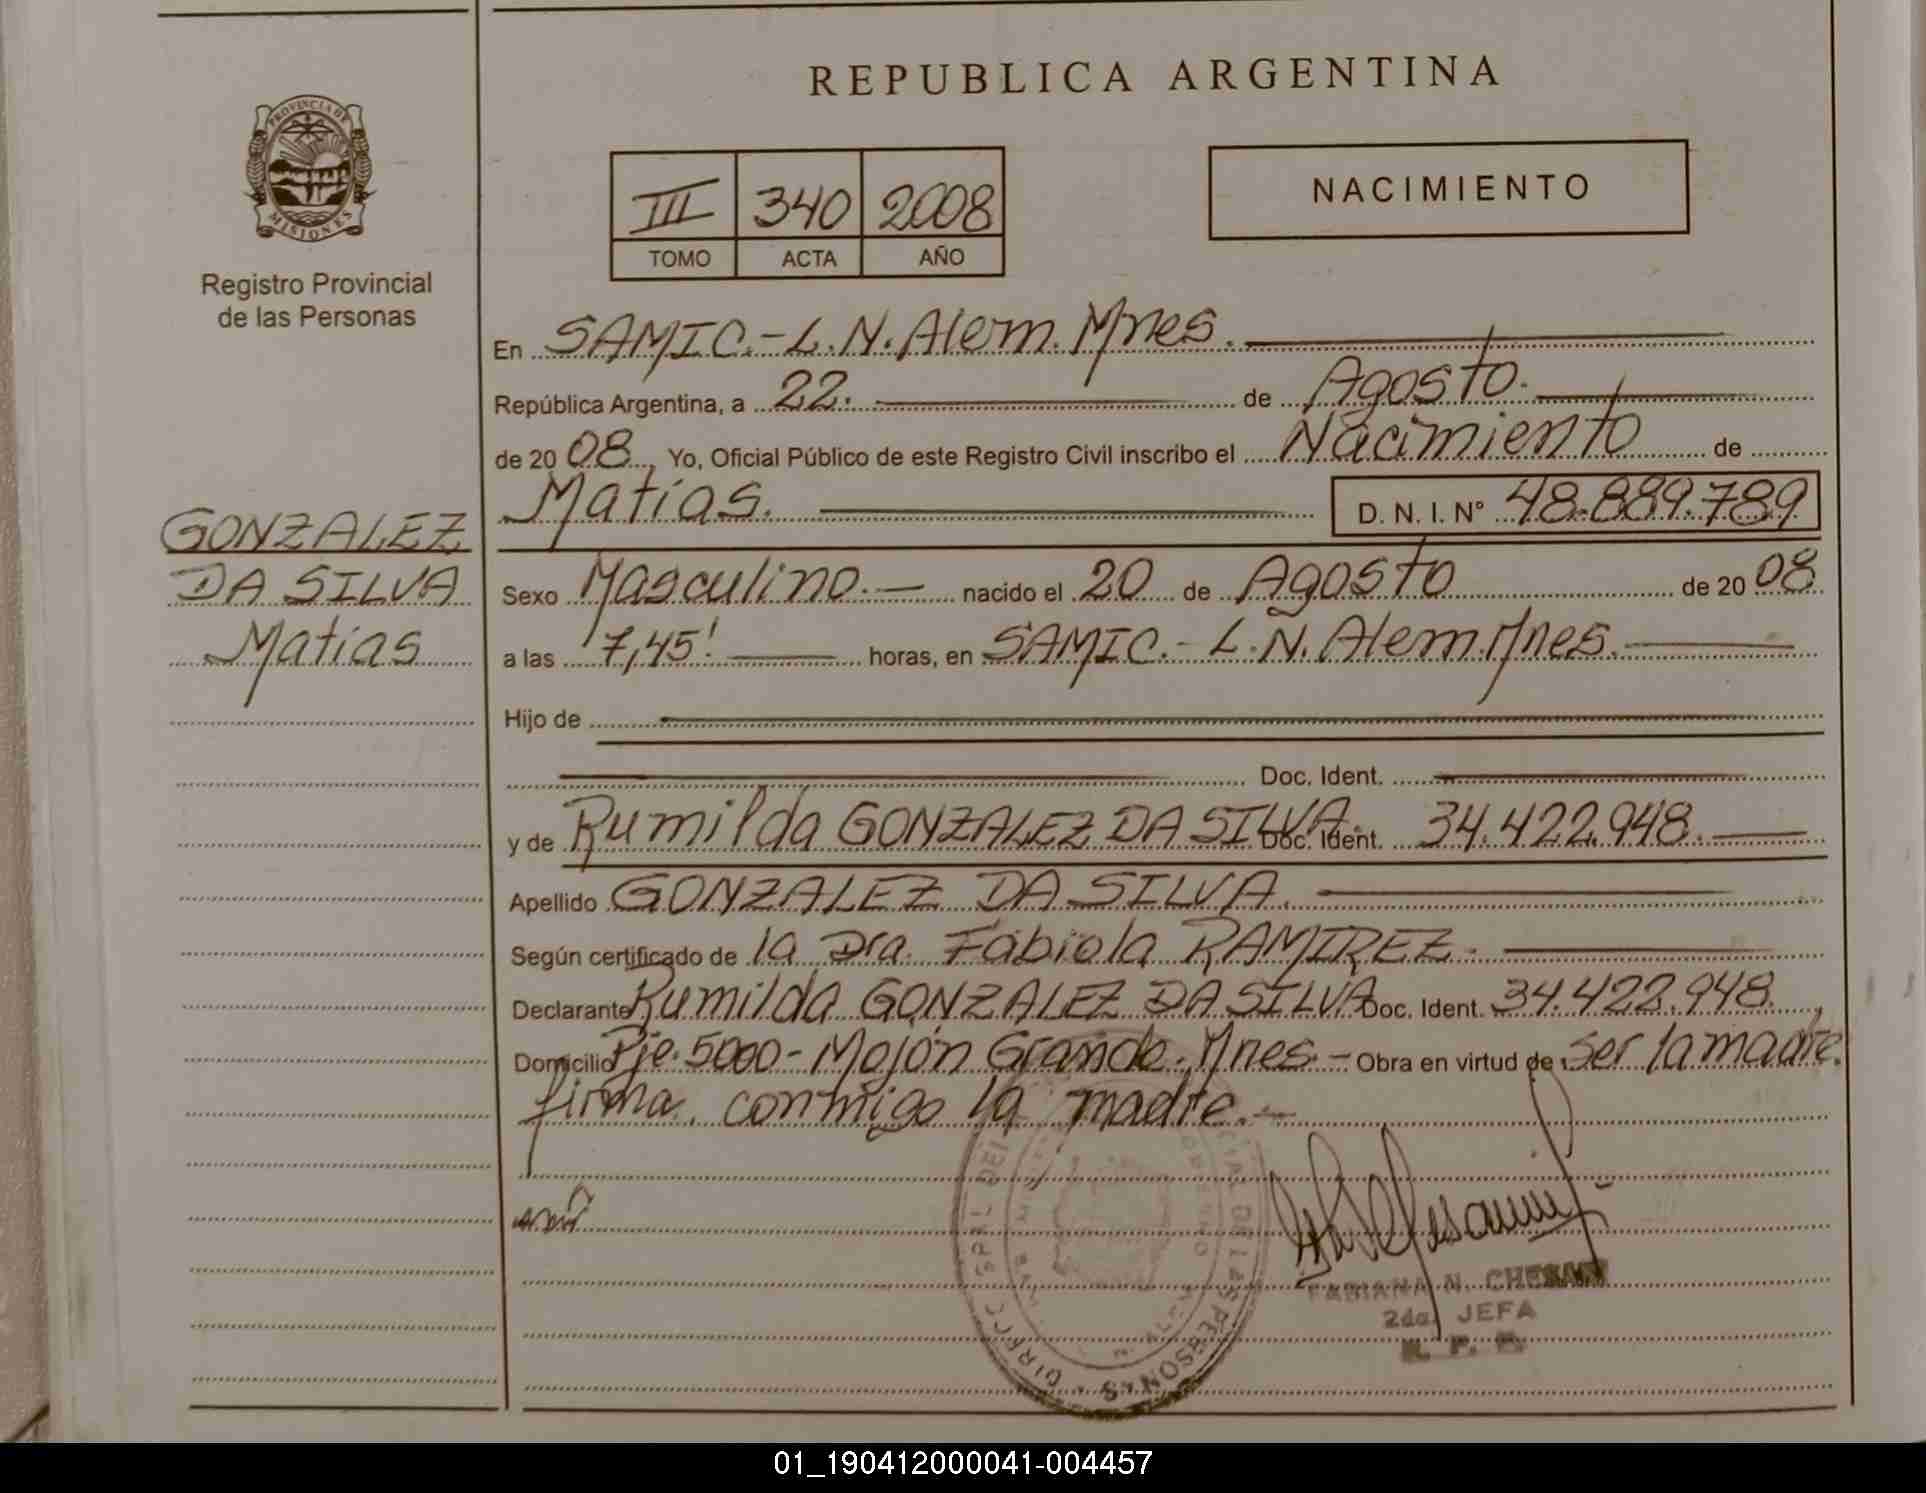 REPUBLICA ARGENTINA
PROVINCIA DE
MISIONES
Registro Provincial
de las Personas
III 340 2008
TOMO ACTA AÑO
NACIMIENTO
GONZALEZ
DA SILVA
Matías
En SAMIC.-L.N.Alem.Mnes.
República Argentina, a 22. de Agosto.
de 2008, Yo, Oficial Público de este Registro Civil inscribo el Nacimiento de
Matías. D. N. I. N° 48.889.789
Sexo Masculino.- nacido el 20 de Agosto de 2008
a las 7,45' horas, en SAMIC.-L.N.Alem.Mnes.
Hijo de
Doc. Ident.
y de Rumilda GONZALEZ DA SILVA. Doc. Ident. 34.422.948.
Apellido GONZALEZ DA SILVA.
Según certificado de la Dra. Fabiola RAMIREZ.
Declarante Rumilda GONZALEZ DA SILVA Doc. Ident. 34.422.948.,
Domicilio Pje.5000-Mojón Grande.Mnes.- Obra en virtud de ser la madre.
firma conmigo la madre.-
FABIANA N. CHESA
2da. JEFA
R. P. P.
01_190412000041-004457